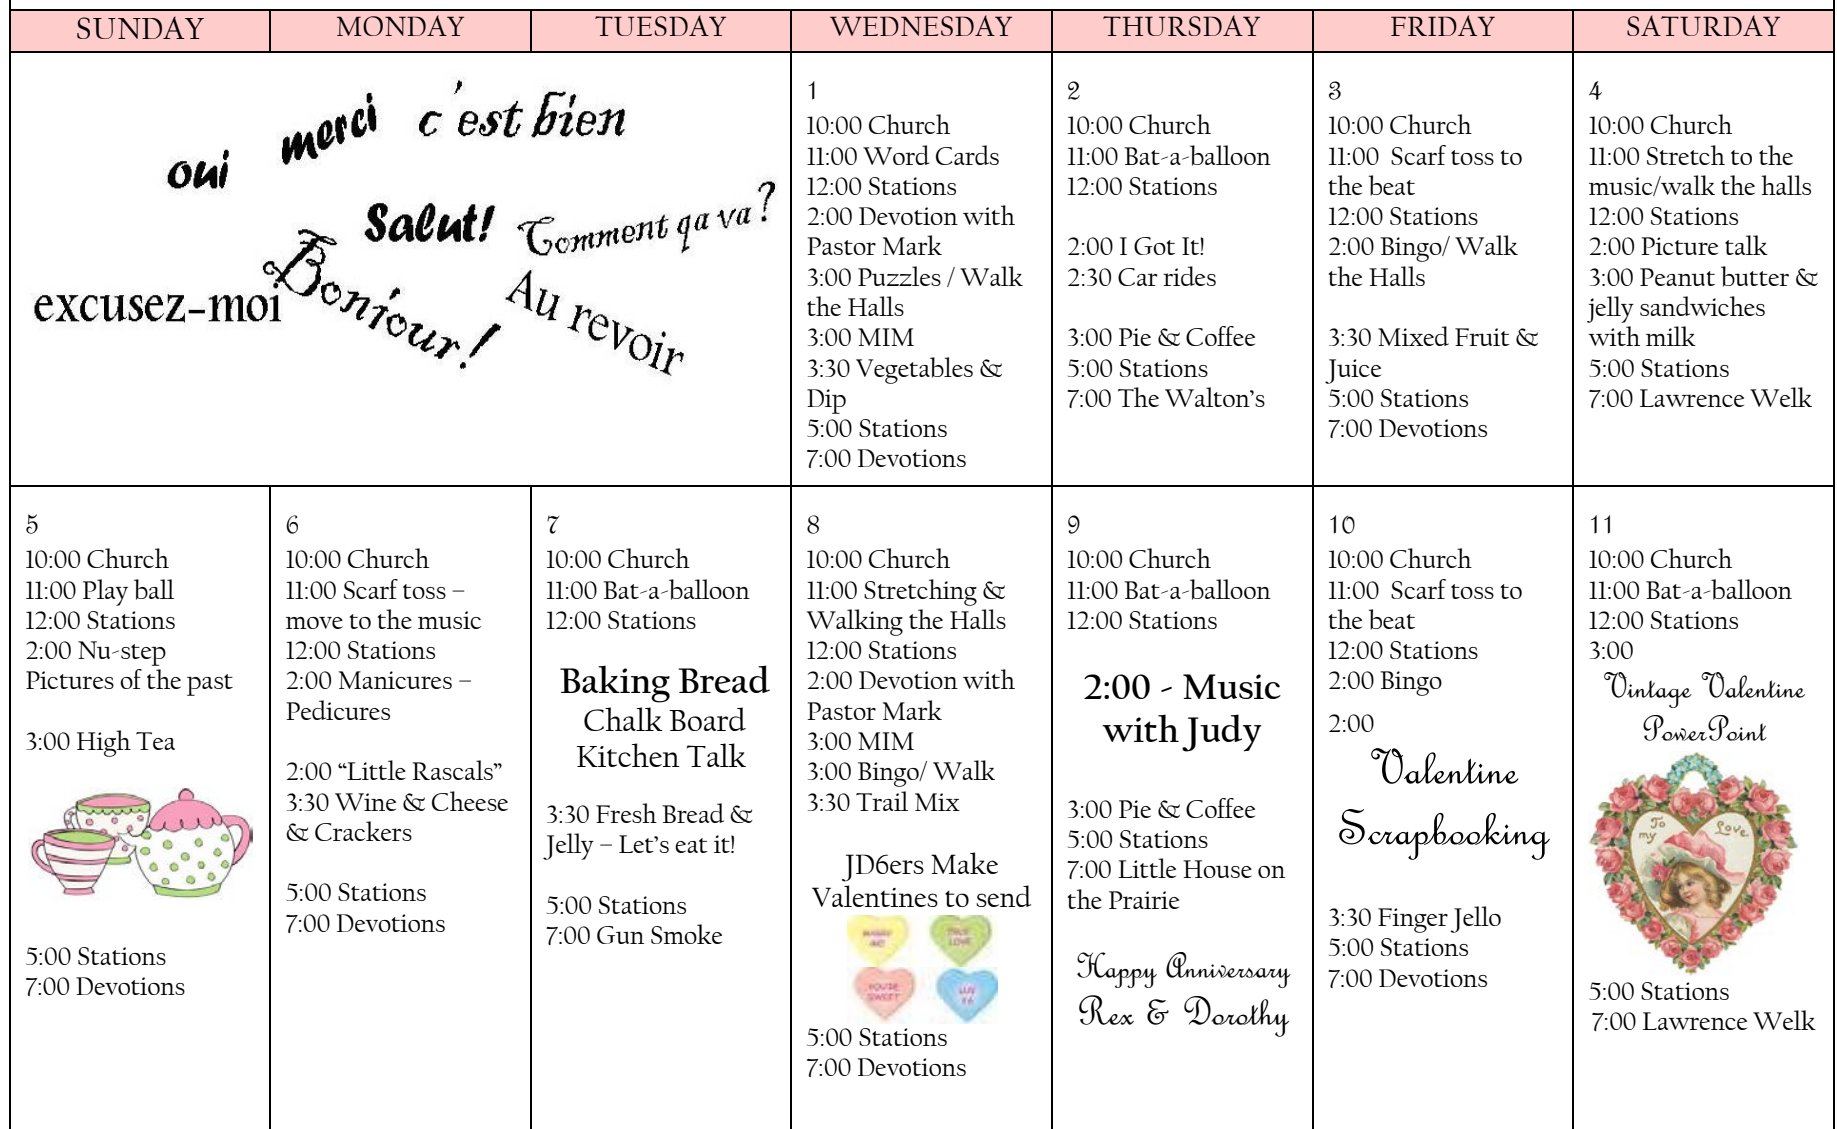 SUNDAY MONDAY TUESDAY WEDNESDAY THURSDAY FRIDAY SATURDAY
oui
merci
c'est bien
Salut!
Comment ça va?
excusez-moi
Bonjour!
Au revoir
1
10:00 Church
11:00 Word Cards
12:00 Stations
2:00 Devotion with
Pastor Mark
3:00 Puzzles / Walk
the Halls
3:00 MIM
3:30 Vegetables &
Dip
5:00 Stations
7:00 Devotions
2
10:00 Church
11:00 Bat-a-balloon
12:00 Stations
2:00 I Got It!
2:30 Car rides
3:00 Pie & Coffee
5:00 Stations
7:00 The Walton's
3
10:00 Church
11:00 Scarf toss to
the beat
12:00 Stations
2:00 Bingo/ Walk
the Halls
3:30 Mixed Fruit &
Juice
5:00 Stations
7:00 Devotions
4
10:00 Church
11:00 Stretch to the
music/walk the halls
12:00 Stations
2:00 Picture talk
3:00 Peanut butter &
jelly sandwiches
with milk
5:00 Stations
7:00 Lawrence Welk
5
10:00 Church
11:00 Play ball
12:00 Stations
2:00 Nu-step
Pictures of the past
3:00 High Tea
5:00 Stations
7:00 Devotions
6
10:00 Church
11:00 Scarf toss –
move to the music
12:00 Stations
2:00 Manicures –
Pedicures
2:00 “Little Rascals”
3:30 Wine & Cheese
& Crackers
5:00 Stations
7:00 Devotions
7
10:00 Church
11:00 Bat-a-balloon
12:00 Stations
Baking Bread
Chalk Board
Kitchen Talk
3:30 Fresh Bread &
Jelly – Let's eat it!
5:00 Stations
7:00 Gun Smoke
8
10:00 Church
11:00 Stretching &
Walking the Halls
12:00 Stations
2:00 Devotion with
Pastor Mark
3:00 MIM
3:00 Bingo/ Walk
3:30 Trail Mix
JD6ers Make
Valentines to send
MARRY
ME
TRUE
LOVE
YOU'RE
SWEET
LUV
5:00 Stations
7:00 Devotions
9
10:00 Church
11:00 Bat-a-balloon
12:00 Stations
2:00 - Music
with Judy
3:00 Pie & Coffee
5:00 Stations
7:00 Little House on
the Prairie
Happy Anniversary
Rex & Dorothy
10
10:00 Church
11:00 Scarf toss to
the beat
12:00 Stations
2:00 Bingo
2:00
Valentine
Scrapbooking
3:30 Finger Jello
5:00 Stations
7:00 Devotions
11
10:00 Church
11:00 Bat-a-balloon
12:00 Stations
3:00
Vintage Valentine
PowerPoint
To
my Love
5:00 Stations
7:00 Lawrence Welk